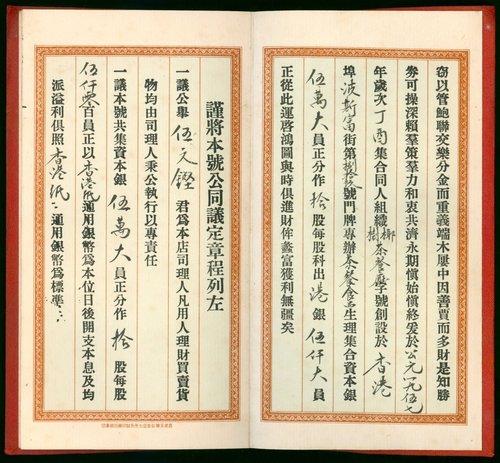 窃以管鮑聯交樂分金而重義端木屢中因善賈而多財是知勝
券可操深賴羣策羣力和衷共濟永期慎始慎終爰於公元一九五七
年歲次丁酉集合同人組織椰樹茶餐廳字號創設於香港
埠波斯富街第捌拾號門牌專辦茶餐食品生理集合資本銀
伍萬大員正分作拾股每股科出港銀伍仟大員
正從此運啓鴻圖與時俱進財侔蠡富獲利無疆矣
謹將本號公同議定章程列左
一議公舉伍元鏗君爲本店司理人凡用人理財買賣貨
物均由司理人秉公執行以專責任
一議本號共集資本銀伍萬大員正分作拾股每股
伍仟零百員正以香港紙通用銀幣爲本位日後開支本息及均
派溢利俱照香港紙通用銀幣爲標準